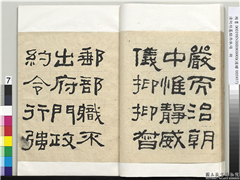 嚴而治朝
中惟靜威
儀抑抑督
郵部職不
出府門政
約令行強
7